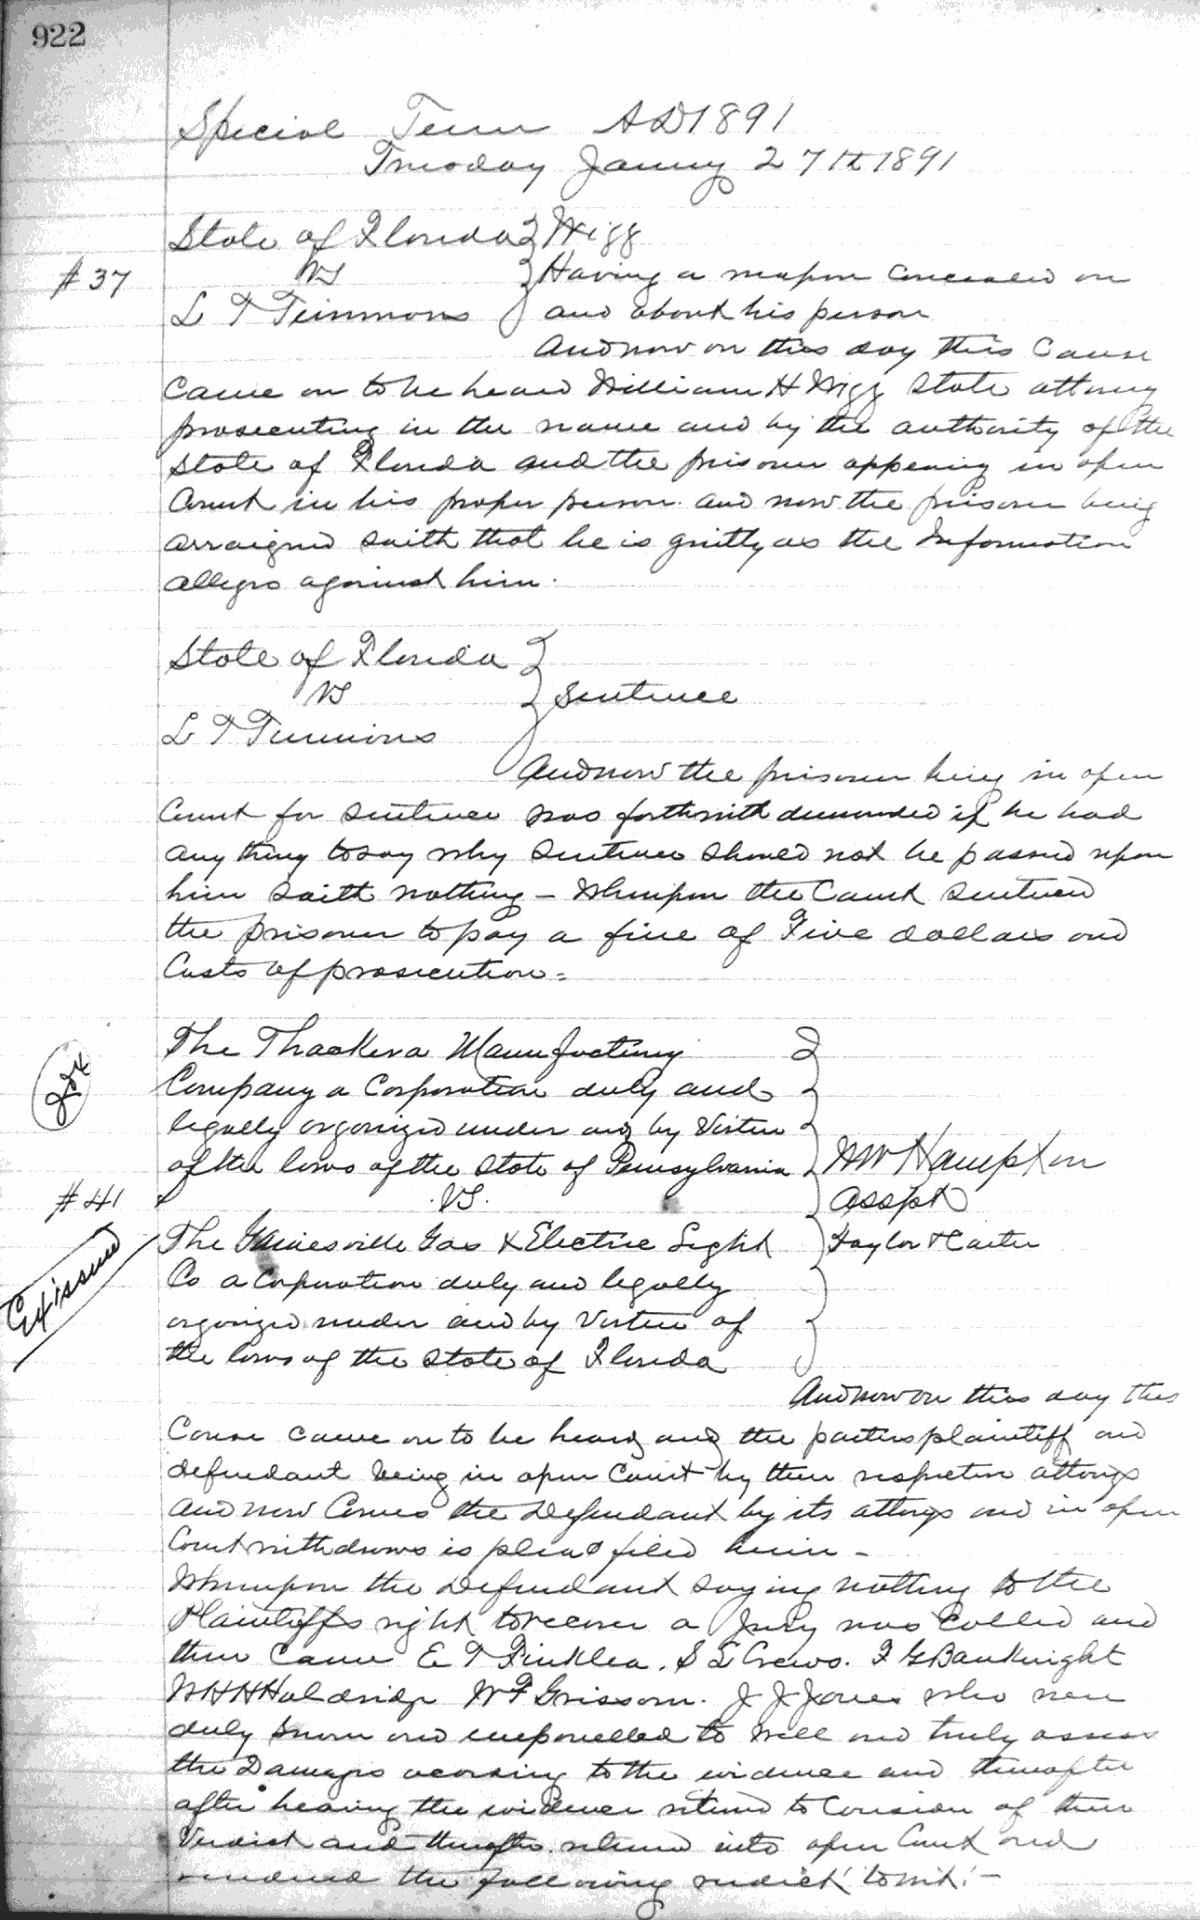 922
Special Term AD 1891
Tuesday Janury 27th 1891
State of Florida Wigg
#37 vs Having a weapon concealed on
L T Timmons and about his person
And now on this day this Cause
Came on to be heard William H Wigg State attorney
prosecuting in the name and by the authority of the
State of Florida and the prisoner appearing in open
Court in his proper person. and now the prisoner being
arraigned saith that he is guilty as the Information
alleges against him.
State of Florida
vs Sentence
L T Timmons
And now the prisoner being in open
Court for sentence was forthwith demanded if he had
any thing to say why sentence should not be passed upon
him saith nothing — Whereupon the Court sentenced
the prisoner to pay a fine of Five dollars and
Costs of prosecution =
The Thackera Manufacturing
Company a Corporation duly and
legally organized under and by Virtue
of the laws of the State of Pennsylvania W W Hampton
#41 vs. asspt
The Gainesville Gas & Electric Light Taylor & Carter
Co a Corporation duly and legally
Ex issued
organized under and by Virtue of
the laws of the State of Florida
And now on this day this
Cause came on to be heard and the parties plaintiff and
defendant being in open Court by their respective attorneys
and now Comes the Defendant by its attorneys and in open
Court withdraws is pleas filed herein —
Whereupon the Defendant saying nothing to the
Plaintiffs right to recover a Jury was Called and
there Came E T Finklea. S L Crews. F G Bauknight
W H H Holdridge W F Grissom. J J Jones who were
duly sworn and empanelled to well and truly assess
the Damages according to the evidence and thereafter
after hearing the evidence retired to Consider of their
Verdict and thereafter returned into open Court and
rendered the following verdict towit: —